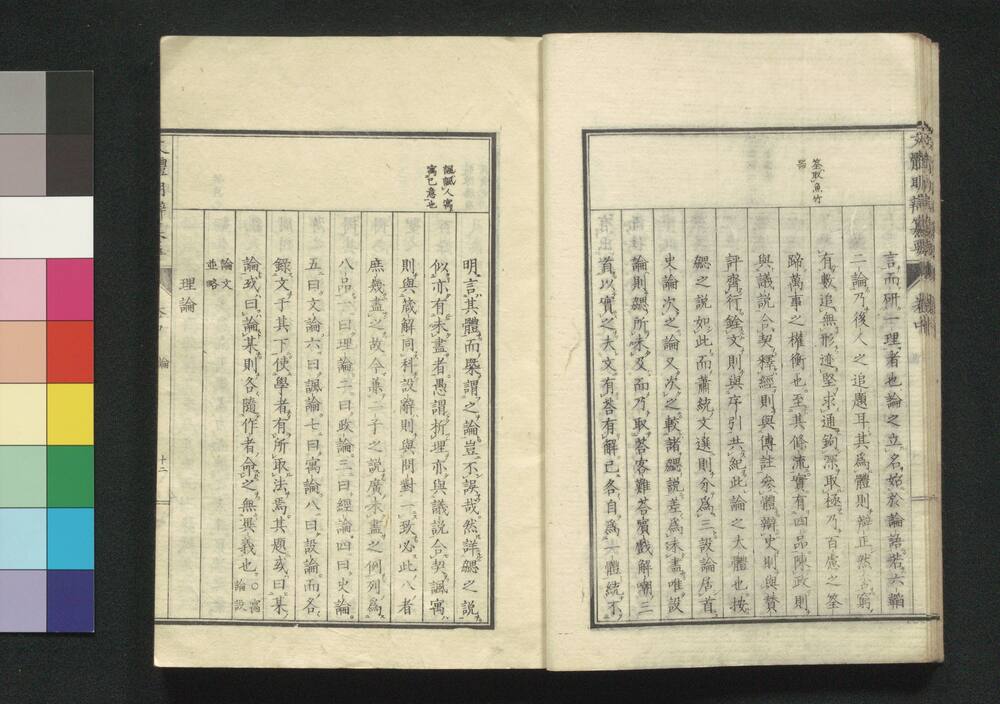 言而研一理者也論之立名始於論語若六韜
二論乃後人之追題耳其爲體則辯正然否窮
有數追無形迹堅求通鉤深取極乃百慮之筌
蹄萬事之權衡也至其條流實有四品陳政則
與議說合契釋經則與傳註參體辯史則與贊
評齊行銓文則與序引共紀此論之大體也按
勰之説如此而蕭統文選則分爲三設論居首
史論次之論又次之較諸勰説差爲未盡唯設
論則勰所未及而乃取荅客難荅賓戲解嘲三
首以實之夫文有荅有解已各自爲一體統不
筌取魚竹
器
明言其體而槩謂之論豈不誤哉然詳勰之説
似亦有未盡者愚謂析理亦與議説合契諷寓
則與箴解同科設辭則與問對一致必此八者
庶幾盡之故今兼二子之説廣未盡之例列爲
八品一曰理論二曰政論三曰經論四曰史論
五曰文論六曰諷論七曰寓論八曰設論而各
錄文于其下使學者有所取法焉其題或曰某
論或曰論某則各隨作者命之無異義也〇寓
論設
論文
並略
理論
諷諷人寓
寓己意也
論
十二